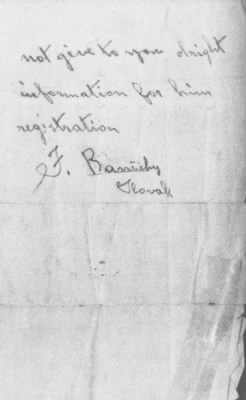 not give to you dright
information for him
registration
F. Banichy
Slovak